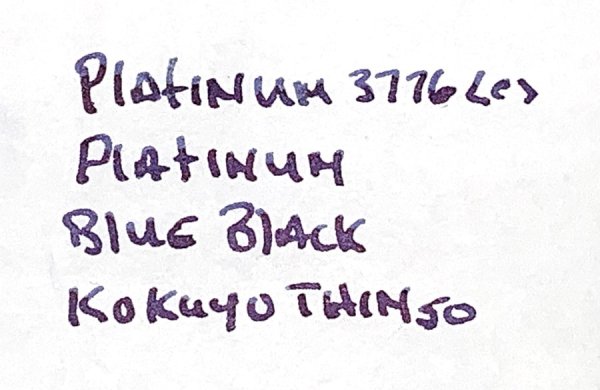 PlATINUM 3776 <c>
PLATINUM
BLUE BLACK
KOKUYO THIN50